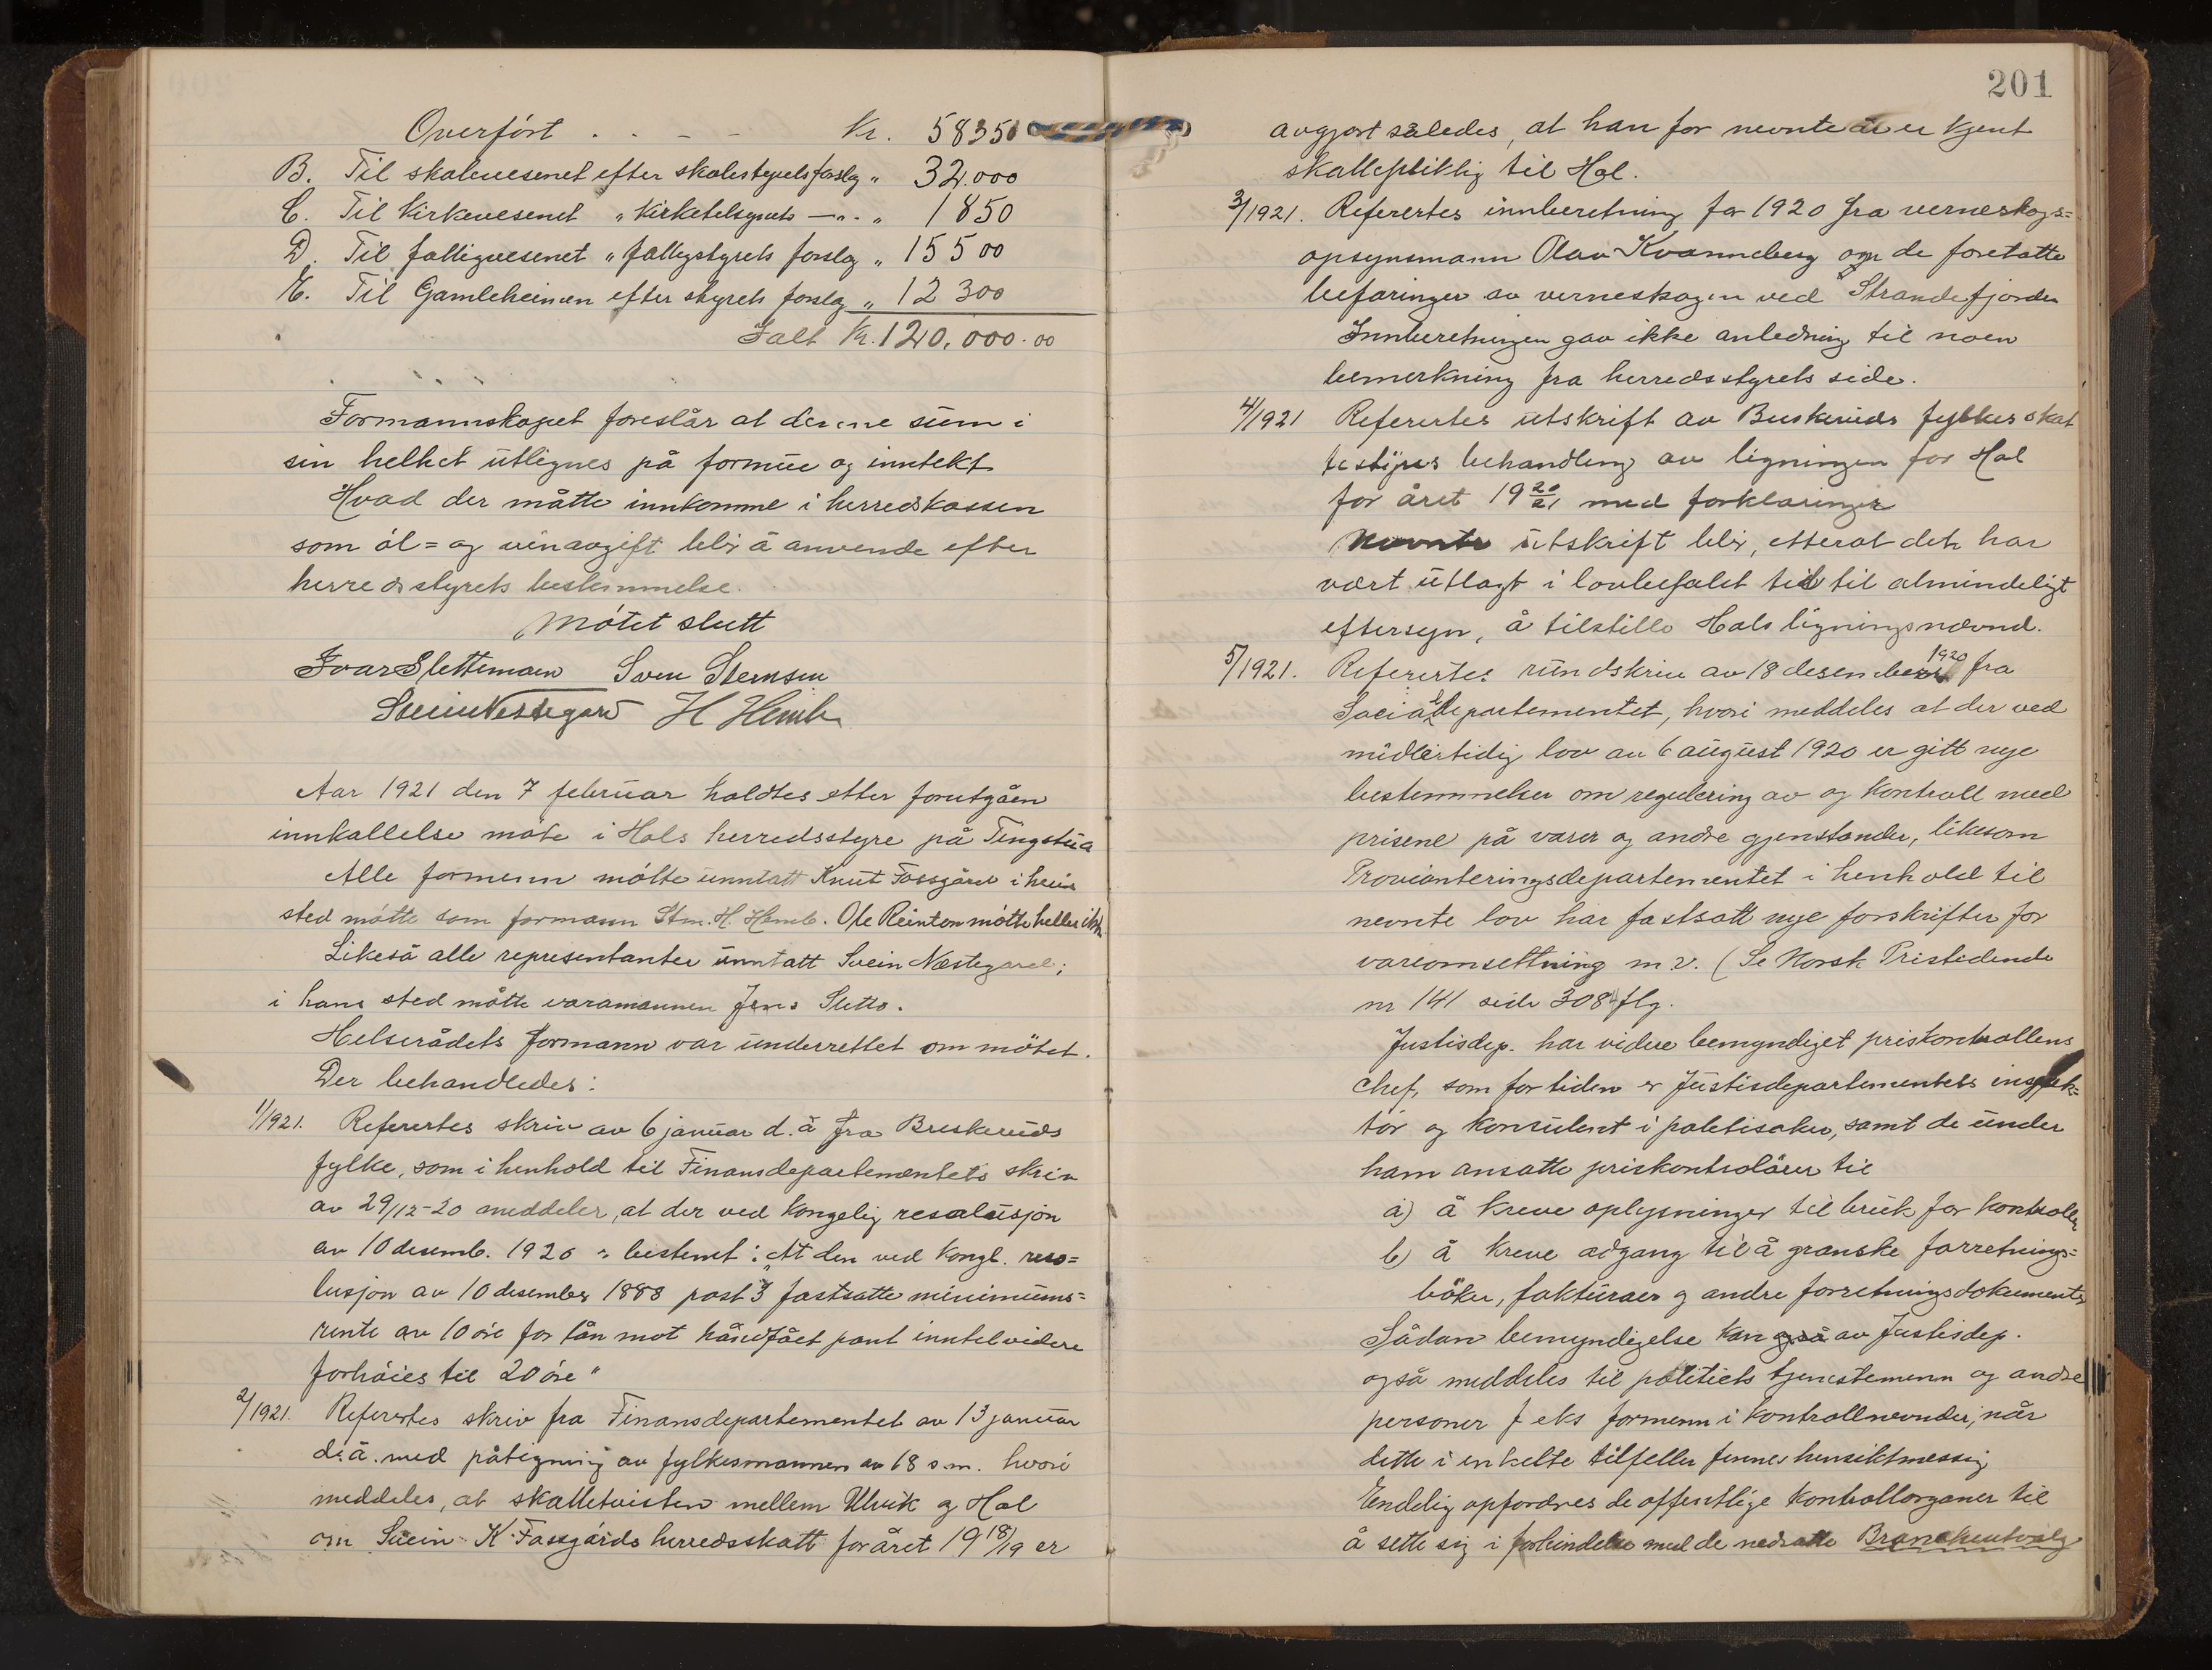 Overført . . - - Kr. 58350
B. Til skolevesenet efter skolestyrets forslag " 32.000
C. Til Kirkevesenet " Kirketilsynets —"- " 1850
D. Til fattigvesenet " fattigstyrets forslag " 15500
E. Til Gamleheimen efter styrets forslag " 12300
Ialt Kr. 120,000.00
Formannskapet foreslår at denne sum i
sin helhet utlignes på formue og inntekt
Hvad der måtte innkomme i herredskassen
som øl= og vinavgift blir å anvende efter
herredsstyrets bestemmelse.
Møtet slutt
Ivar Slettemoen Sven Stensen
Svein Nestegard H Hemb
Aar 1921 den 7 februar holdtes etter forutgåen
innkallelse møte i Hols herredsstyre på Tingstua
Alle formenn møtte unntatt Knut Fossgård i hvis
sted møtte som formann Stm. H. Hemb. Ole Reinton møtte heller ikke
Likeså alle representanter unntatt Svein Nestegard;
i hans sted møtte varamannen Jens Sletto.
Helserådets formann var underrettet om møtet.
Der behandledes:
1/1921. Referertes skriv av 6 januar d. å fra Buskeruds
fylke, som i henhold til Finansdepartementets skriv
av 29/12-20 meddeler, at der ved kongelig resolusjon
av 10 desemb. 1920 er bestemt: "At den ved kongl. reso=
lusjon av 10 desember 1888 post 3 fastsatte minimums=
rente av 10 øre for lån mot håndfået pant inntil videre
forhøies til 20 øre"
2/1921. Referertes skriv fra Finansdepartementet av 13 januar
d. å. med påtegning av fylkesmannen av 18 s.m. hvori
meddeles, at skattetvisten mellem Ulvik og Hol
om Svein K. Fossgårds herredsskatt for året 1918/19 er
201
avgjort således, at han for nevnte år er kjent
skattepliktig til Hol.
3/1921. Referertes innberetning for 1920 fra verneskogs=
opsynsmann Olav Kvanneberg om de foretatte
befaringer av verneskogen ved Strandefjorden
Innberetningen gav ikke anledning til noen
bemerkning fra herredsstyrets side.
4/1921 Referertes utskrift av Buskeruds fylkesskat
testyres behandling av ligningen for Hol
for året 19 20/21 med forklaringer
Nevnte utskrift blir, etterat det har
vært utlagt i lovbefalet tid til almindeligt
eftersyn, å tilstille Hols ligningsnevnd.
5/1921. Referertes rundskriv av 18 desember 1920 fra
Socialdepartementet, hvori meddeles at der ved
midlertidig lov av 6 august 1920 er gitt nye
bestemmelser om regulering av og kontroll med
prisene på varer og andre gjenstander, likesom
Provianteringsdepartementet i henhold til
nevnte lov har fastsatt nye forskrifter for
vareomsettning m. v. (Se Norsk Pristidende
nr 141 side 308 flg.
Justisdep. har videre bemyndiget priskontrollens
chef, som for tiden er Justisdepartementets inspek=
tør og konsulent i politisaker, samt de under
ham ansatte priskontrolører til
a) å kreve oplysninger til bruk for kontrollen
b) å kreve adgang til å granske forretnings=
bøker, fakturaer og andre forretningsdokumenter
Sådan bemyndigelse kan også av Justisdep.
også meddeles til politiets tjenestemenn og andre
personer f eks formenn i kontrollnevnder, når
dette i enkelte tilfeller finnes hensiktmessig
Endelig opfordres de offentlige kontrollorganer til
å sette sig i forbindelse med de nedsatte Branchentvalg